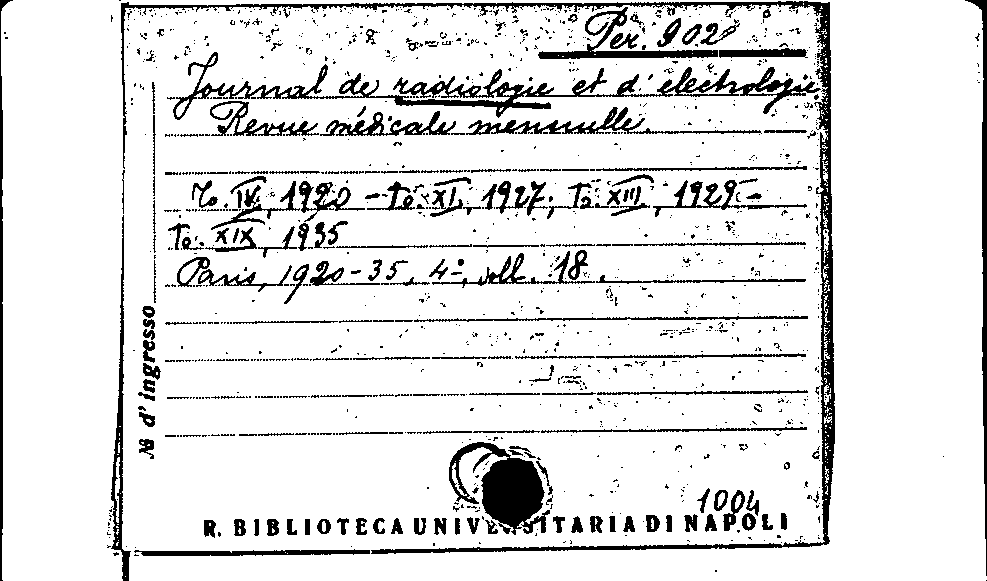 Per. 902
Journal de radiologie et d'électrologie
Revue médicale mensuelle.
To. IV, 1920 - to. XI, 1927; To. XIII, 1929 -
To. XIX, 1935
Paris, 1920-35, 4°, voll. 18.
No d'ingresso
1004
R. BIBLIOTECA UNIVERSITARIA DI NAPOLI